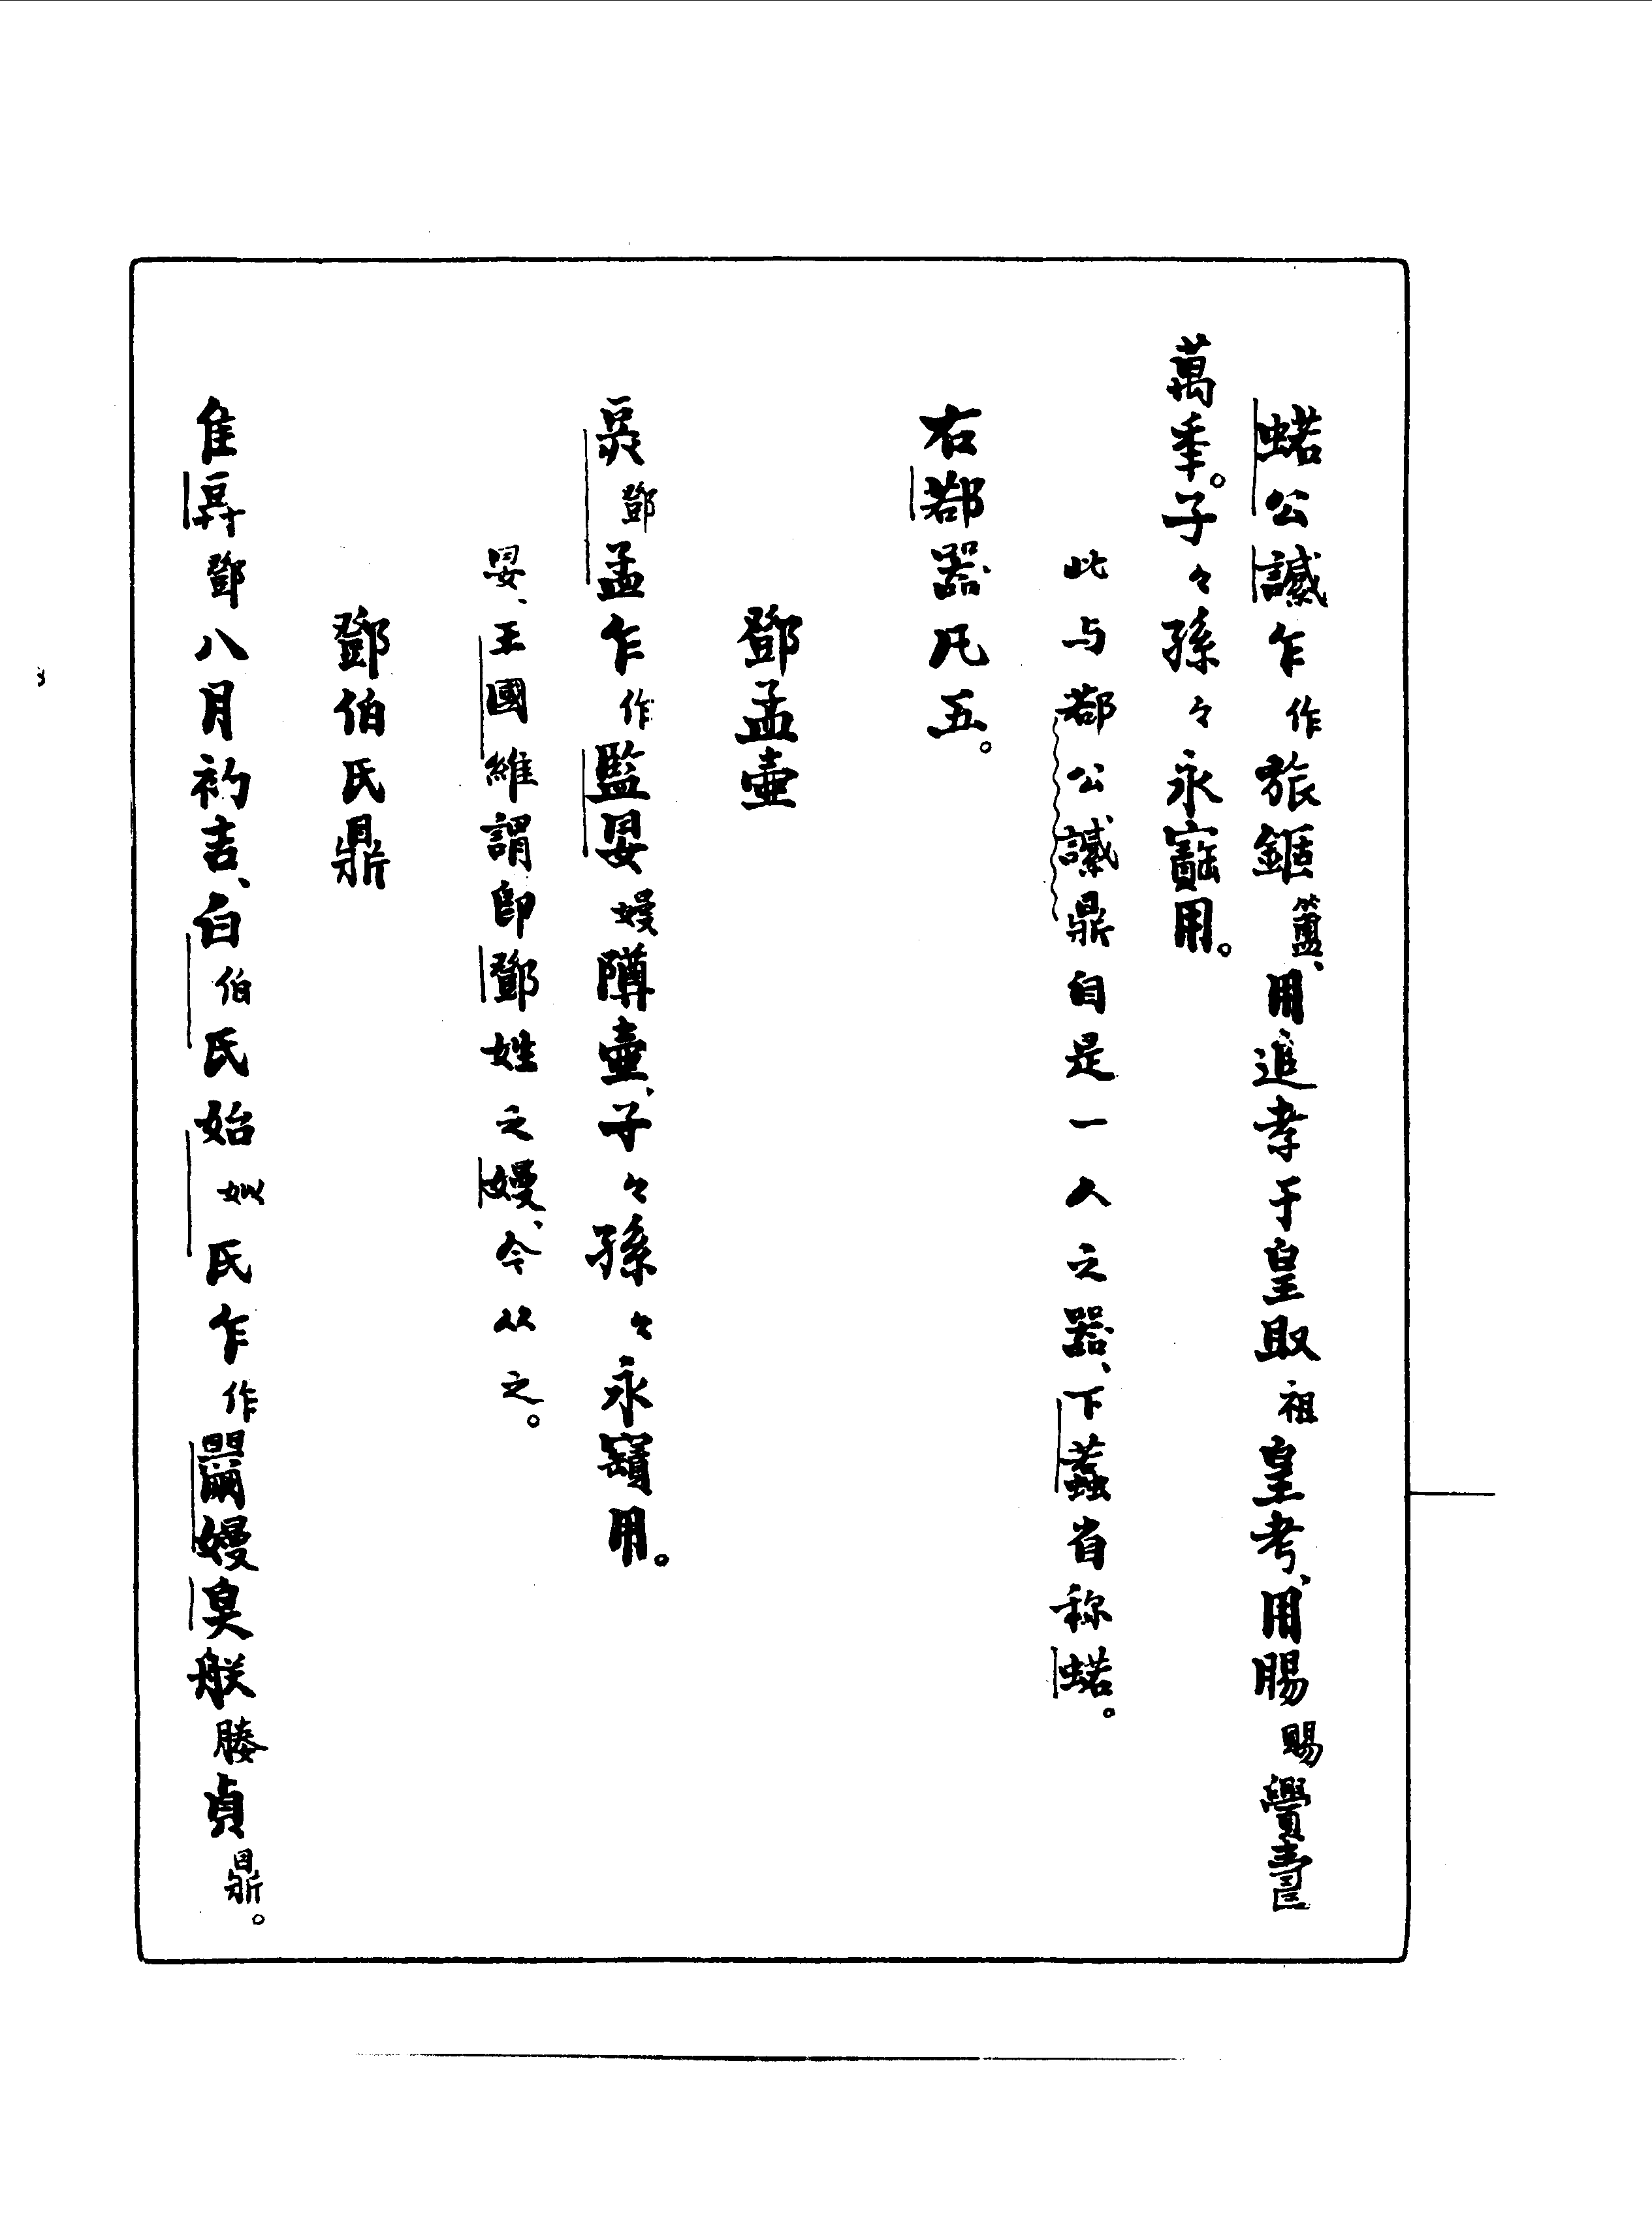 蛞公諴乍作旅鋸簠、用追孝于皇取祖皇考、用賜賜釁壽
萬年。子〻孫〻永寶用。
此与鄀公諴鼎自是一人之器、下蠚省称蛞。
右鄀器凡五。
鄧孟壺
鄧孟乍作監嫚䵼壺、子〻孫〻永寶用。
妟、王國維謂即鄧姓之嫚、今从之。
鄧伯氏鼎
隹鄧八月初吉、白伯氏始姒氏乍作嫚㚖朕媵貞鼎。